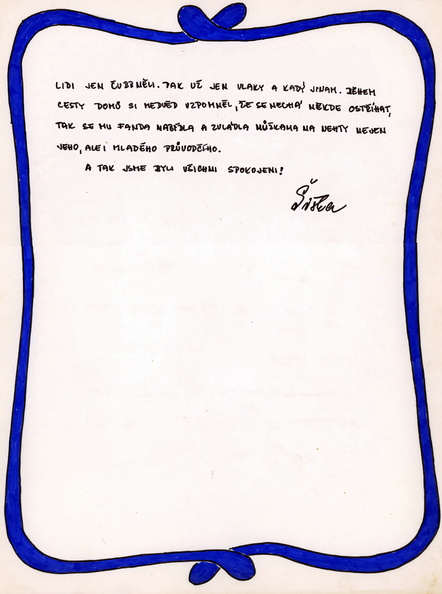 LIDI JEN ČUBRNĚLI. TAK UŽ JEN VLAKY A KAŽDÝ JINAM. BĚHEM
CESTY DOMŮ SI MEDVĚD VZPOMNĚL, ŽE SE NECHÁ NĚKDE OSTŘÍHAT,
TAK SE MU FANDA NABÍDLA A ZVLÁDLA NŮŽKAMA NA NEHTY NEJEN
JEHO, ALE I MLADÉHO PRŮVODČÍHO.
A TAK JSME BYLI VŠICHNI SPOKOJENI!
Šiška